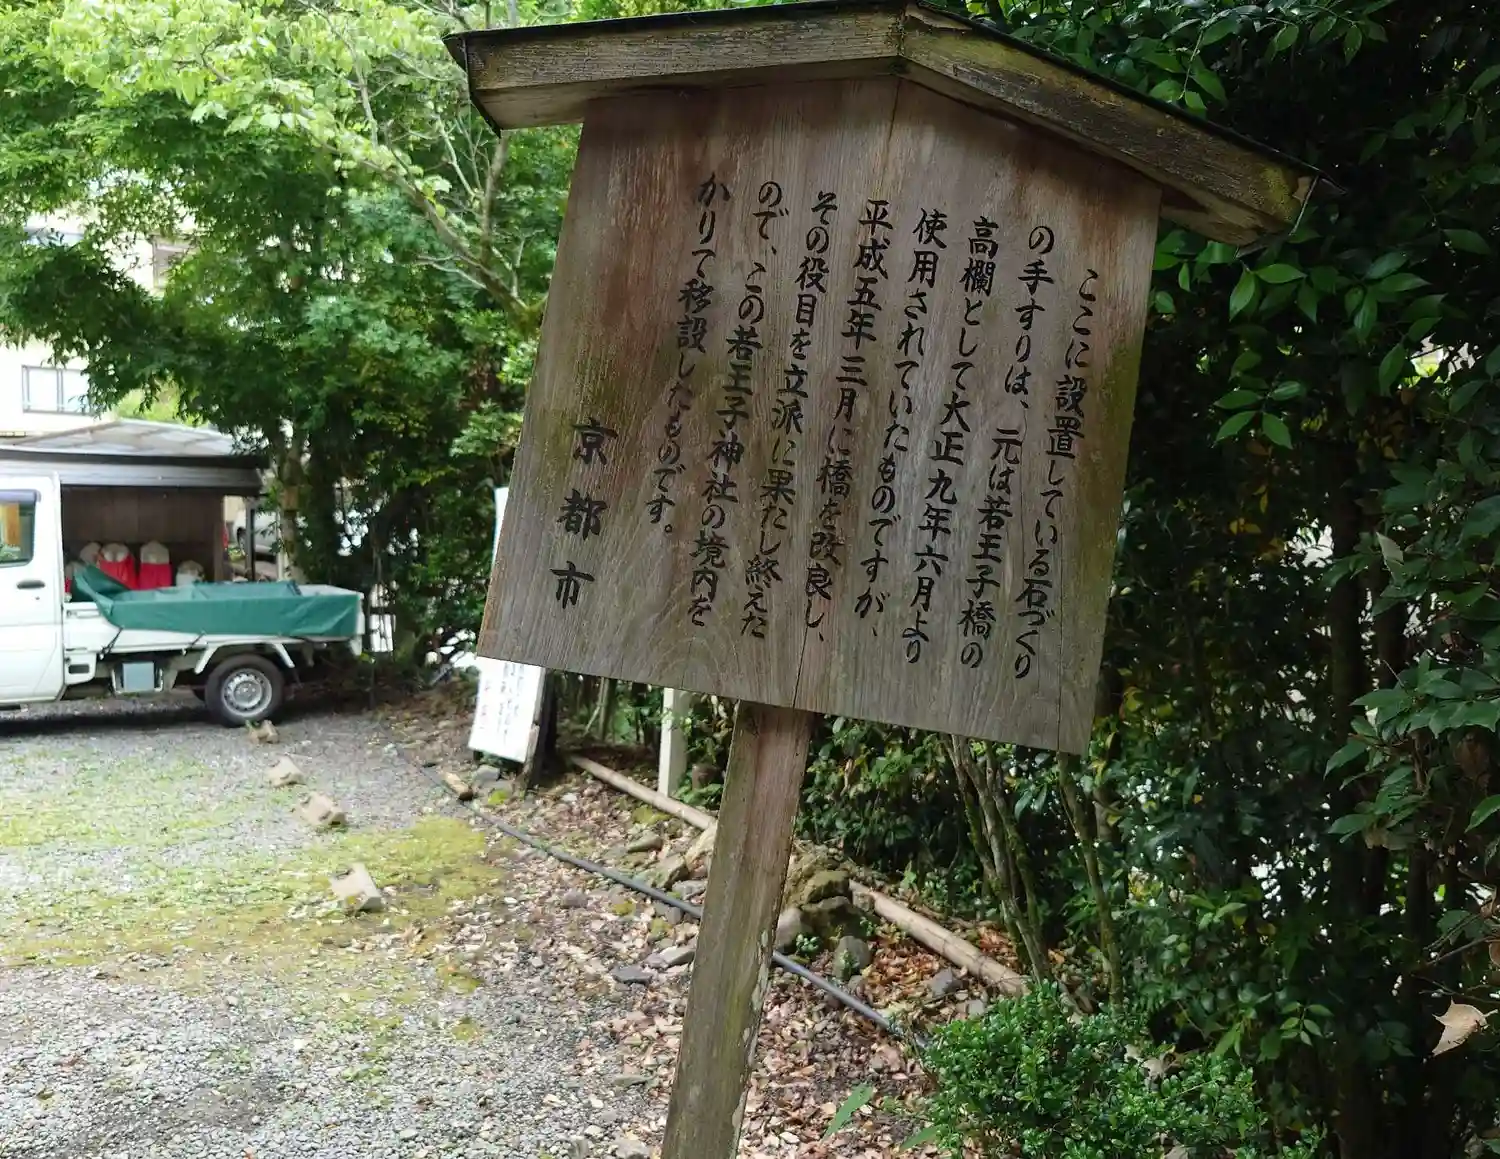 ここに設置している石づくり
の手すりは、元は若王子橋の
高欄として大正九年六月より
使用されていたものですが、
平成五年三月に橋を改良し、
その役目を立派に果たし終えた
ので、この若王子神社の境内を
かりて移設したものです。
京都市